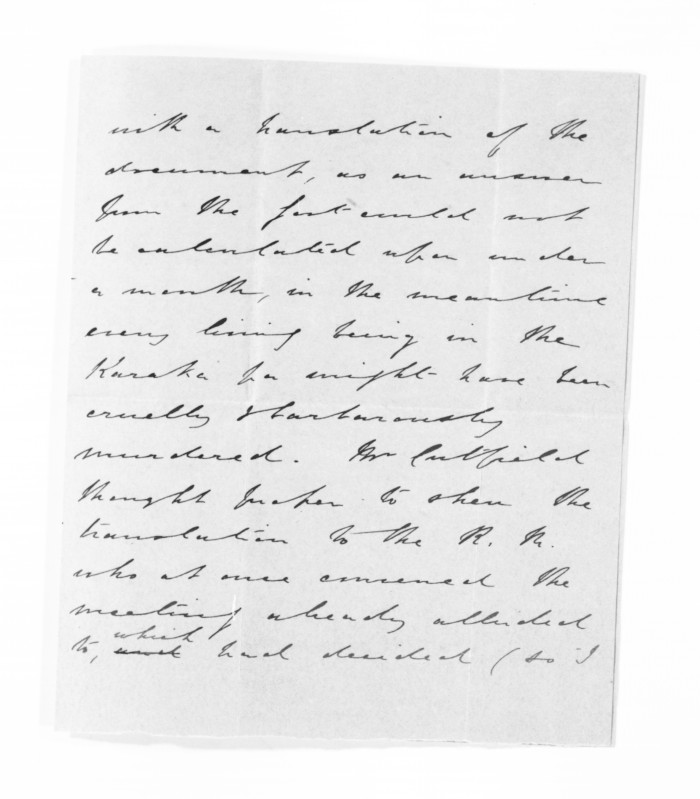 with a translation of the
document, as an answer
from the fort could not
be calculated upon under
a month, in the meantime
every living being in the
Karaka pa might have been
cruelly & barbarously
murdered. Mr Cutfield
thought proper to shew the
translation to the R. M.
who at once convened the
meeting already alluded
to, which had decided (so I